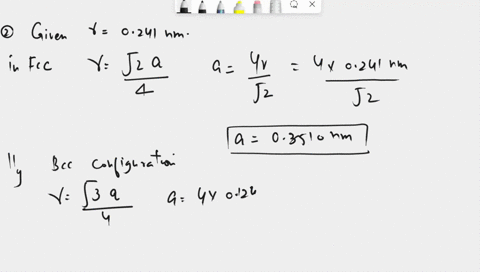 ② Given r = 0.241 nm.
in Fcc r = √2 a / 4 a = 4r / √2 = 4 x 0.241 nm / √2
a = 0.3510 nm
|||y Bcc configuration
r = √3 a / 4 a = 4 x 0.124